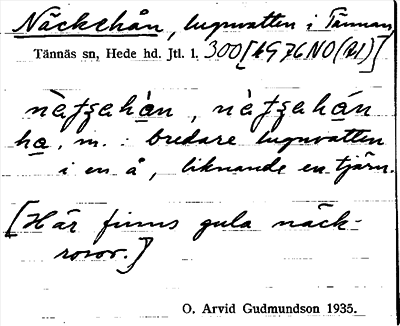 Näckehån, lugnvatten i Tännan,
Tännäs sn, Hede hd. Jtl. l. 300
ha, m. : bredare lugnvatten
i en å, liknande en tjärn.
[Här finns gula näck-
rosor.]
O. Arvid Gudmundson 1935.